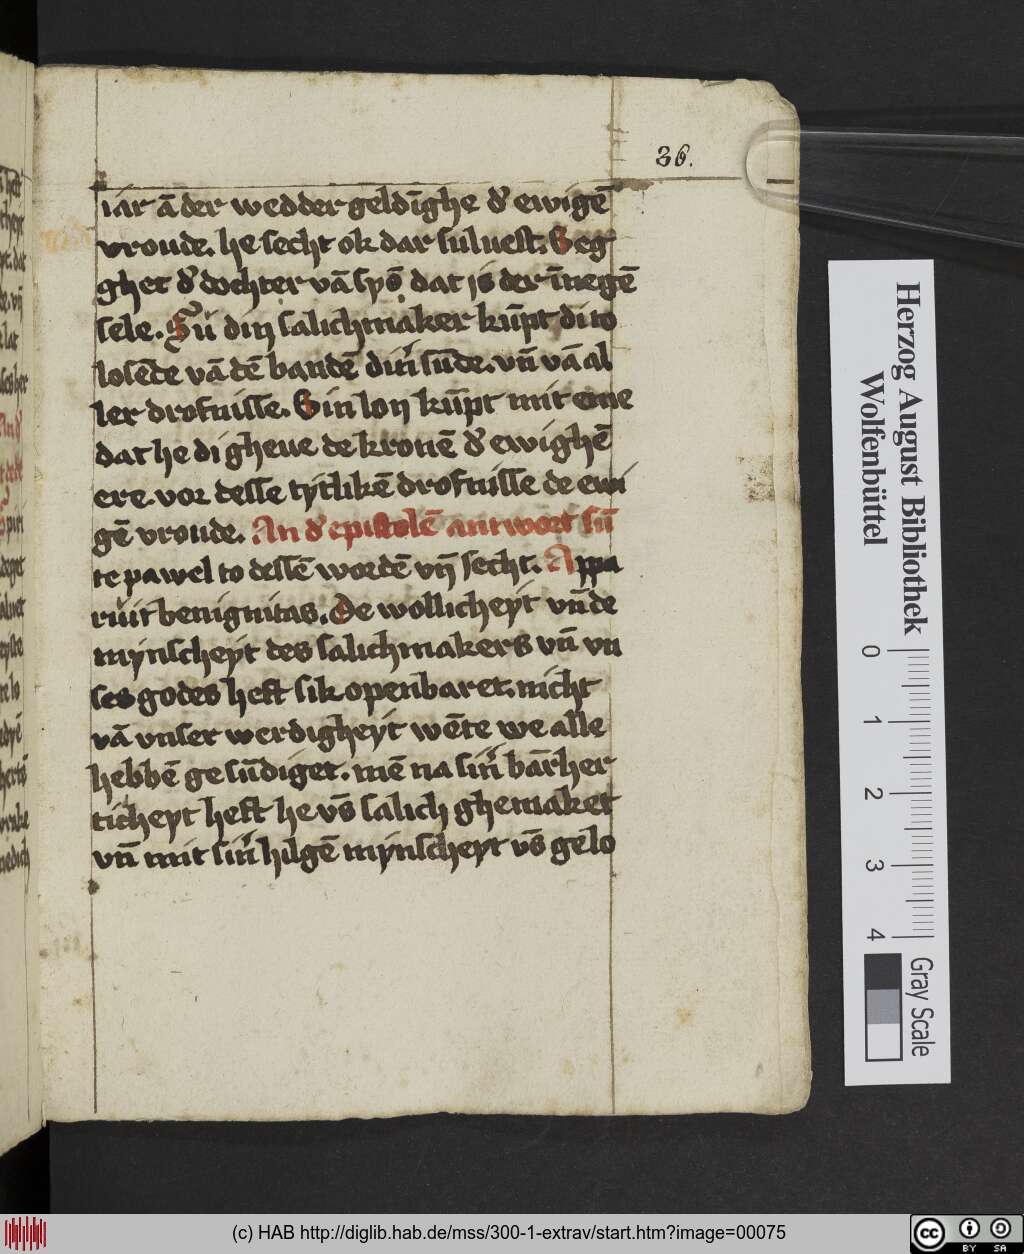 36.
iar ā der wedder geldīghe d' ewigē
vroude. he secht ok dar suluest. Seg
ghet d' dochter vā syō dat is der īnegē
sele. Sü din salichmaker kūpt di to
losēde vā dē bandē din' sūde. vn̄ vā al
ler drofnisse. Sin lon kūpt mit eme
dat he di gheue de kronē d' ewighē
ere. vor desse tytlikē drofnisse de ewi
gē vroude. An d' epistolē antwort sūt
te pawel to dessē wordē vn̄ secht. Appa
ruit benignitas. De wollicheyt vn̄ de
mynscheyt des salichmakers vn̄ vn
ses godes heft sik openbaret. nicht
vā vnser werdigheyt wēte we alle
hebbē ge sūdiget. mē na sin' bārher
ticheyt heft he vs̄ salich ghemaket
vn̄ mit sin' hilgē mynscheyt vs̄ gelo
Herzog August Bibliothek
Wolfenbüttel
0 1 2 3 4
Gray Scale
(c) HAB http://diglib.hab.de/mss/300-1-extrav/start.htm?image=00075
cc BY SA